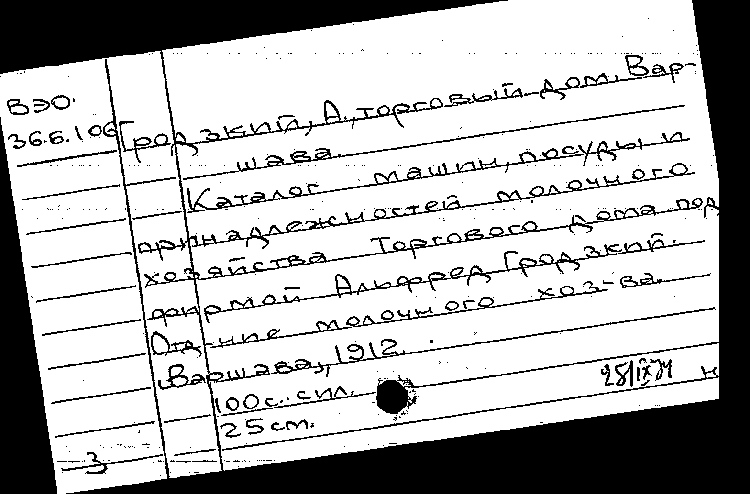 ВЭО.
36.Б.106
Гродзкий, А., торговый дом. Вар-
шава.
Каталог машин, посуды и
принадлежностей молочного
хозяйства Торгового дома под
фирмой Альфред Гродзкий.
Отд-ние молочного хоз-ва.
Варшава, 1912.
100 с. с ил.
25 см.
28/IX
н
3